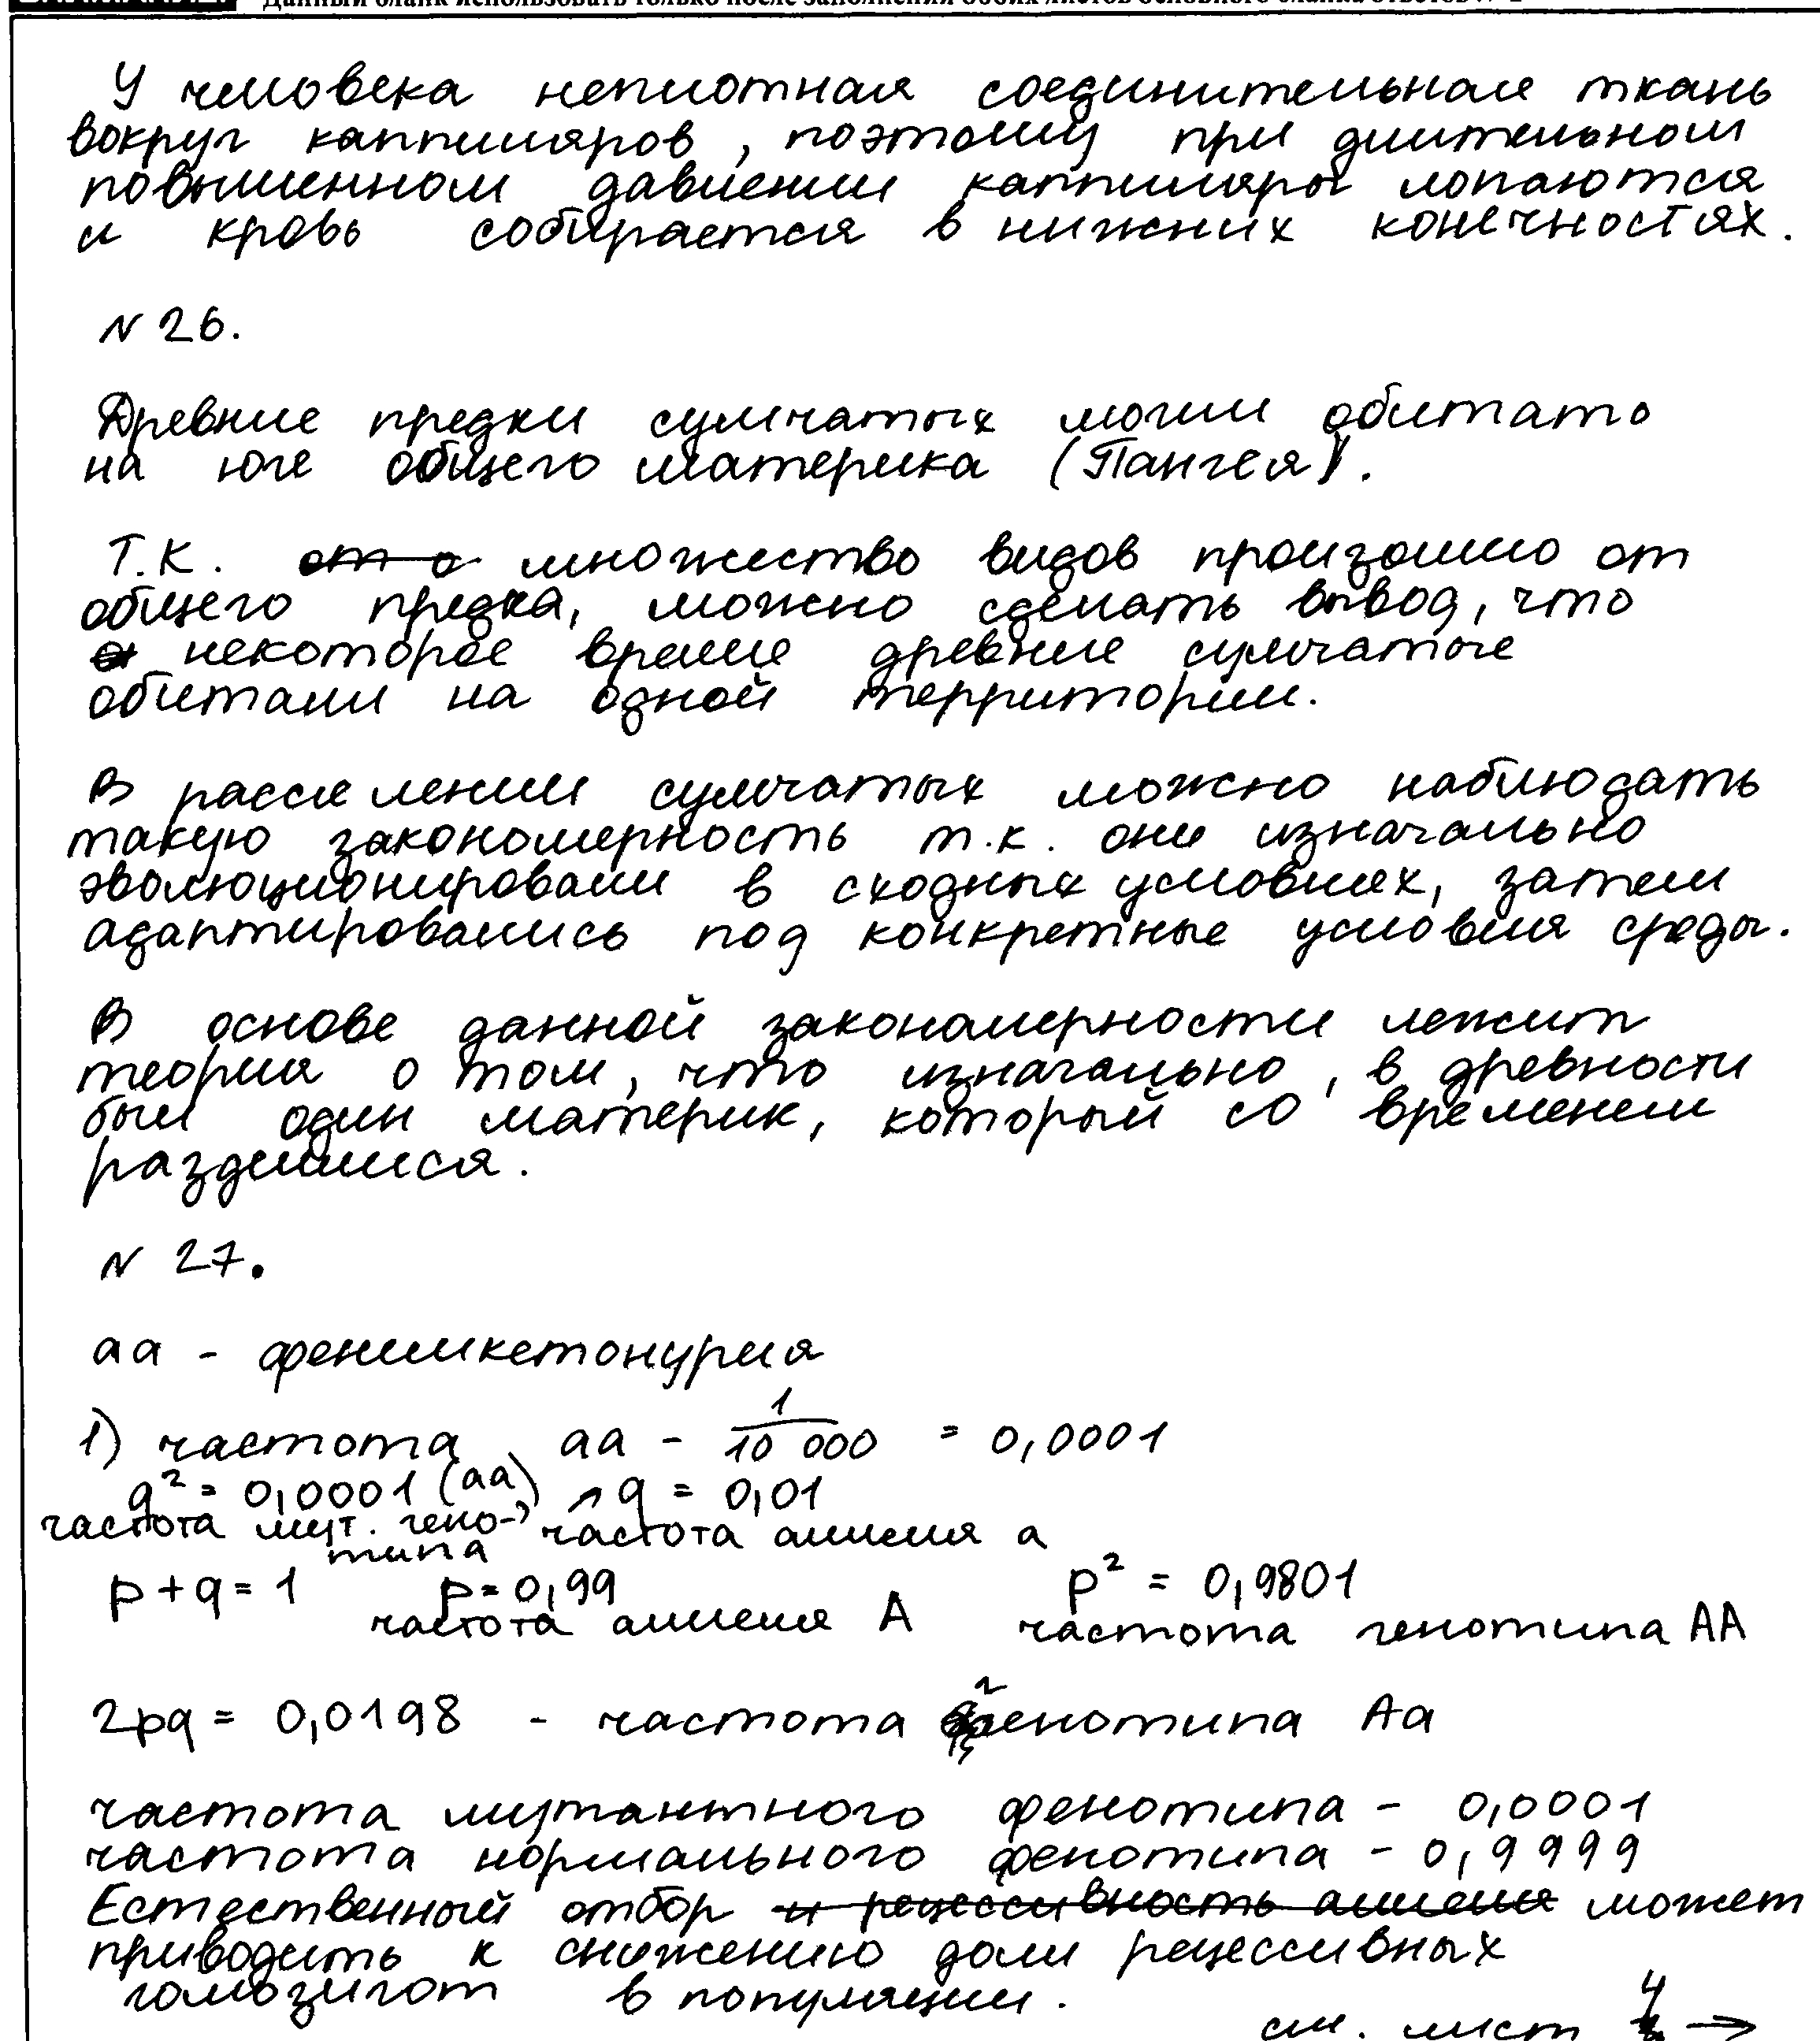 Данный бланк использовать только после заполнения обоих листов основного бланка ответов № 2
У человека неплотная соединительная ткань
вокруг каппиляров, поэтому при длительном
повышенном давлении каппиляры лопаются
и кровь собирается в нижних конечностях.
N 26.
Древние предки сумчатых могли обитать
на юге общего материка (Пангея).
Т.К. от о множество видов произошло от
общего предка, можно сделать вывод, что
некоторое время древние сумчатые
обитали на одной территории.
В расселении сумчатых можно наблюдать
такую закономерность т.к. они изначально
эволюционировали в сходных условиях, затем
адаптировались под конкретные условия среды.
В основе данной закономерности лежит
теория о том, что изначально, в древности
был один материк, который со временем
разделился.
N 27.
аа - фенилкетонурия
1) частота аа - 1/10 000 = 0,0001
q² = 0,0001 (аа) ↗ q = 0,01
частота мут. гено-> частота аллеля а
типа
p + q = 1 p = 0,99 p² = 0,9801
частота аллеля А частота генотипа АА
2pq = 0,0198 - частота генотипа Аа
частота мутантного фенотипа - 0,0001
частота нормального фенотипа - 0,9999
Естественный отбор и рецессивность аллеля может
приводить к снижению доли рецессивных
гомозигот в популяции.
см. лист 4 →